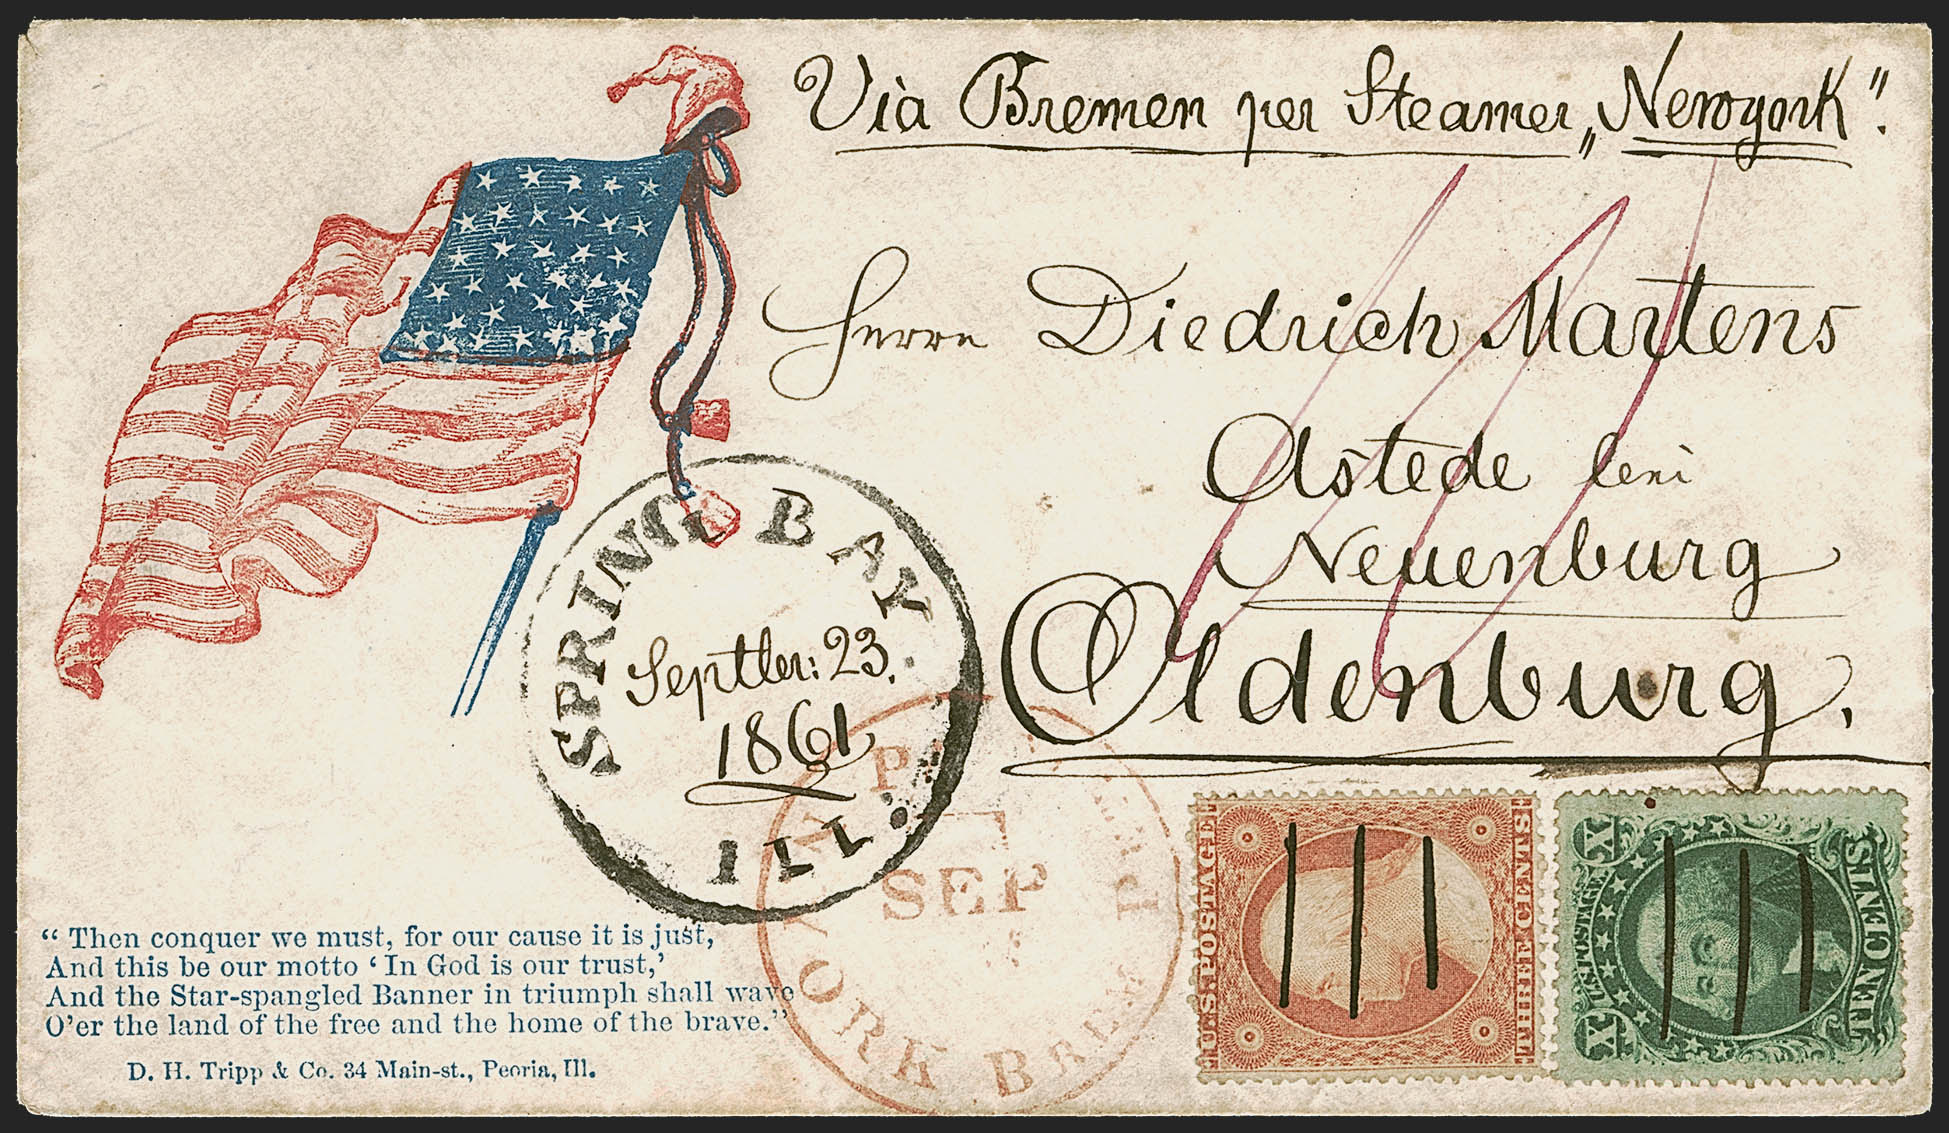 Via Bremen per Steamer „Newyork".
Herrn Diedrich Martens
Astede bei
Neuenburg
Oldenburg.
SPRING BAY
Septber: 23.
1861
ILL.
SEP
YORK BREM PAKET
U.S. POSTAGE
THREE CENTS
X X
U.S. POSTAGE
TEN CENTS
“ Then conquer we must, for our cause it is just,
And this be our motto ‘ In God is our trust,’
And the Star-spangled Banner in triumph shall wave
O’er the land of the free and the home of the brave.”
D. H. Tripp & Co. 34 Main-st., Peoria, Ill.